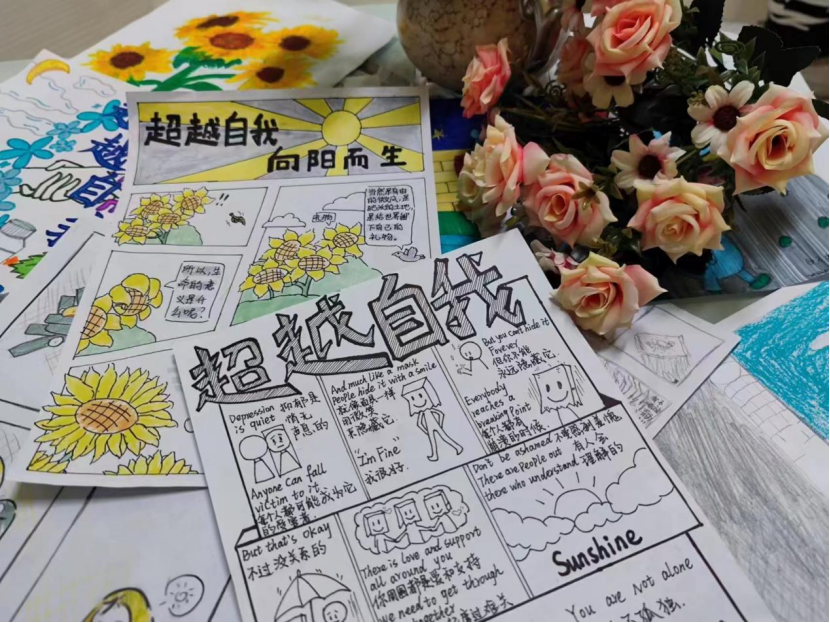 超越自我
向阳而生
所以,生
命的意
义是什
么呢?
超越自我
Depression
is quiet
抑郁是
悄无
声息的
Anyone Can fall
victim to it
每个人都可能成为它
的受害者
And much like a mask
people hide it with a smile
就像面具一样
用微笑
来隐藏它
"I'm Fine"
我很好.
But you can't hide it
Forever
但你不能
永远隐藏它.
Everybody
reaches a
breaking Point
每个人都有
崩溃的时候.
But that's okay
不过没关系的
There is love and support
all around you
你周围都是爱和支持
we need to get through
together
Don't be ashamed 不要感到羞愧
There are People out 有人会
there who understand 理解你的
Sunshine
You are not alone
孤独.